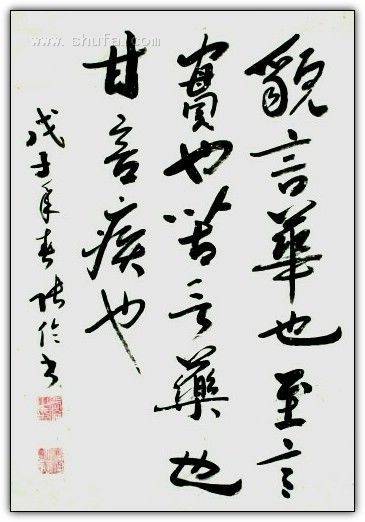 貌言華也至言
實也苦言藥也
甘言疾也
戊子年春張倫書
www.shufa.com